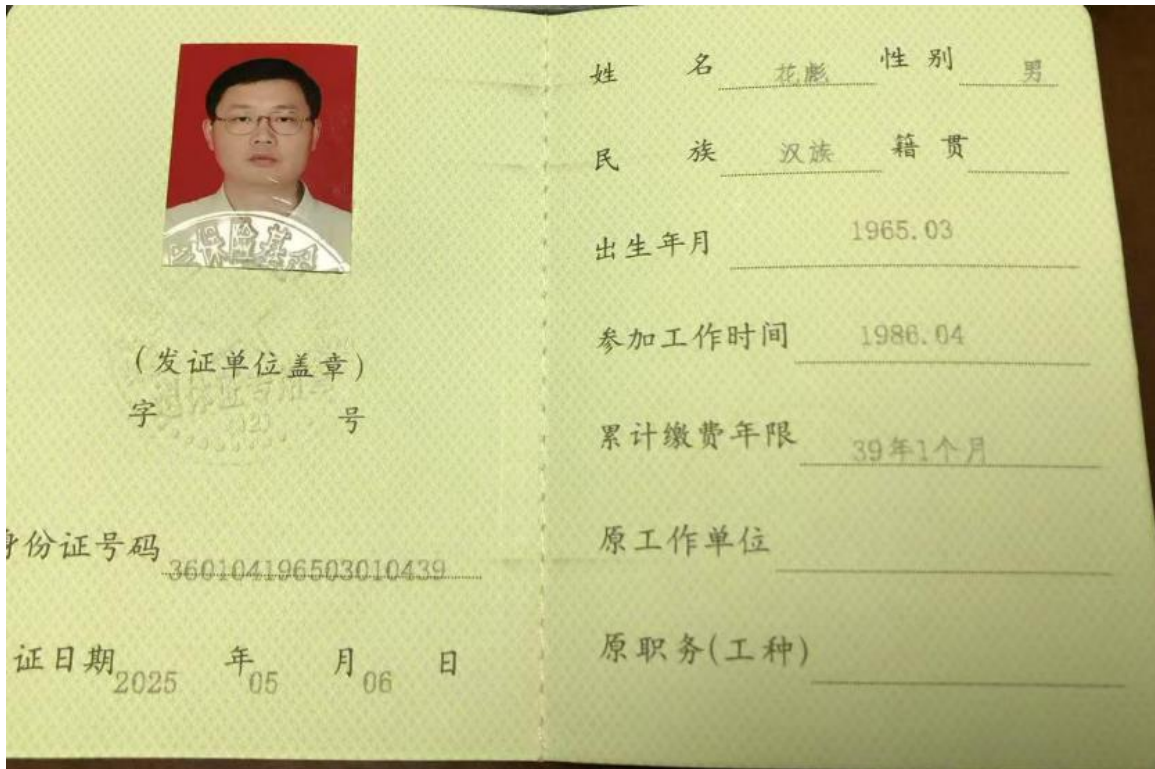 保险基
(发证单位盖章)
退休证专用章
(2)
字 号
身份证号码 360104196503010439
证日期 2025 年 05 月 06 日
姓 名 花彪 性别 男
民 族 汉族 籍贯
出生年月 1965.03
参加工作时间 1986.04
累计缴费年限 39年1个月
原工作单位
原职务(工种)